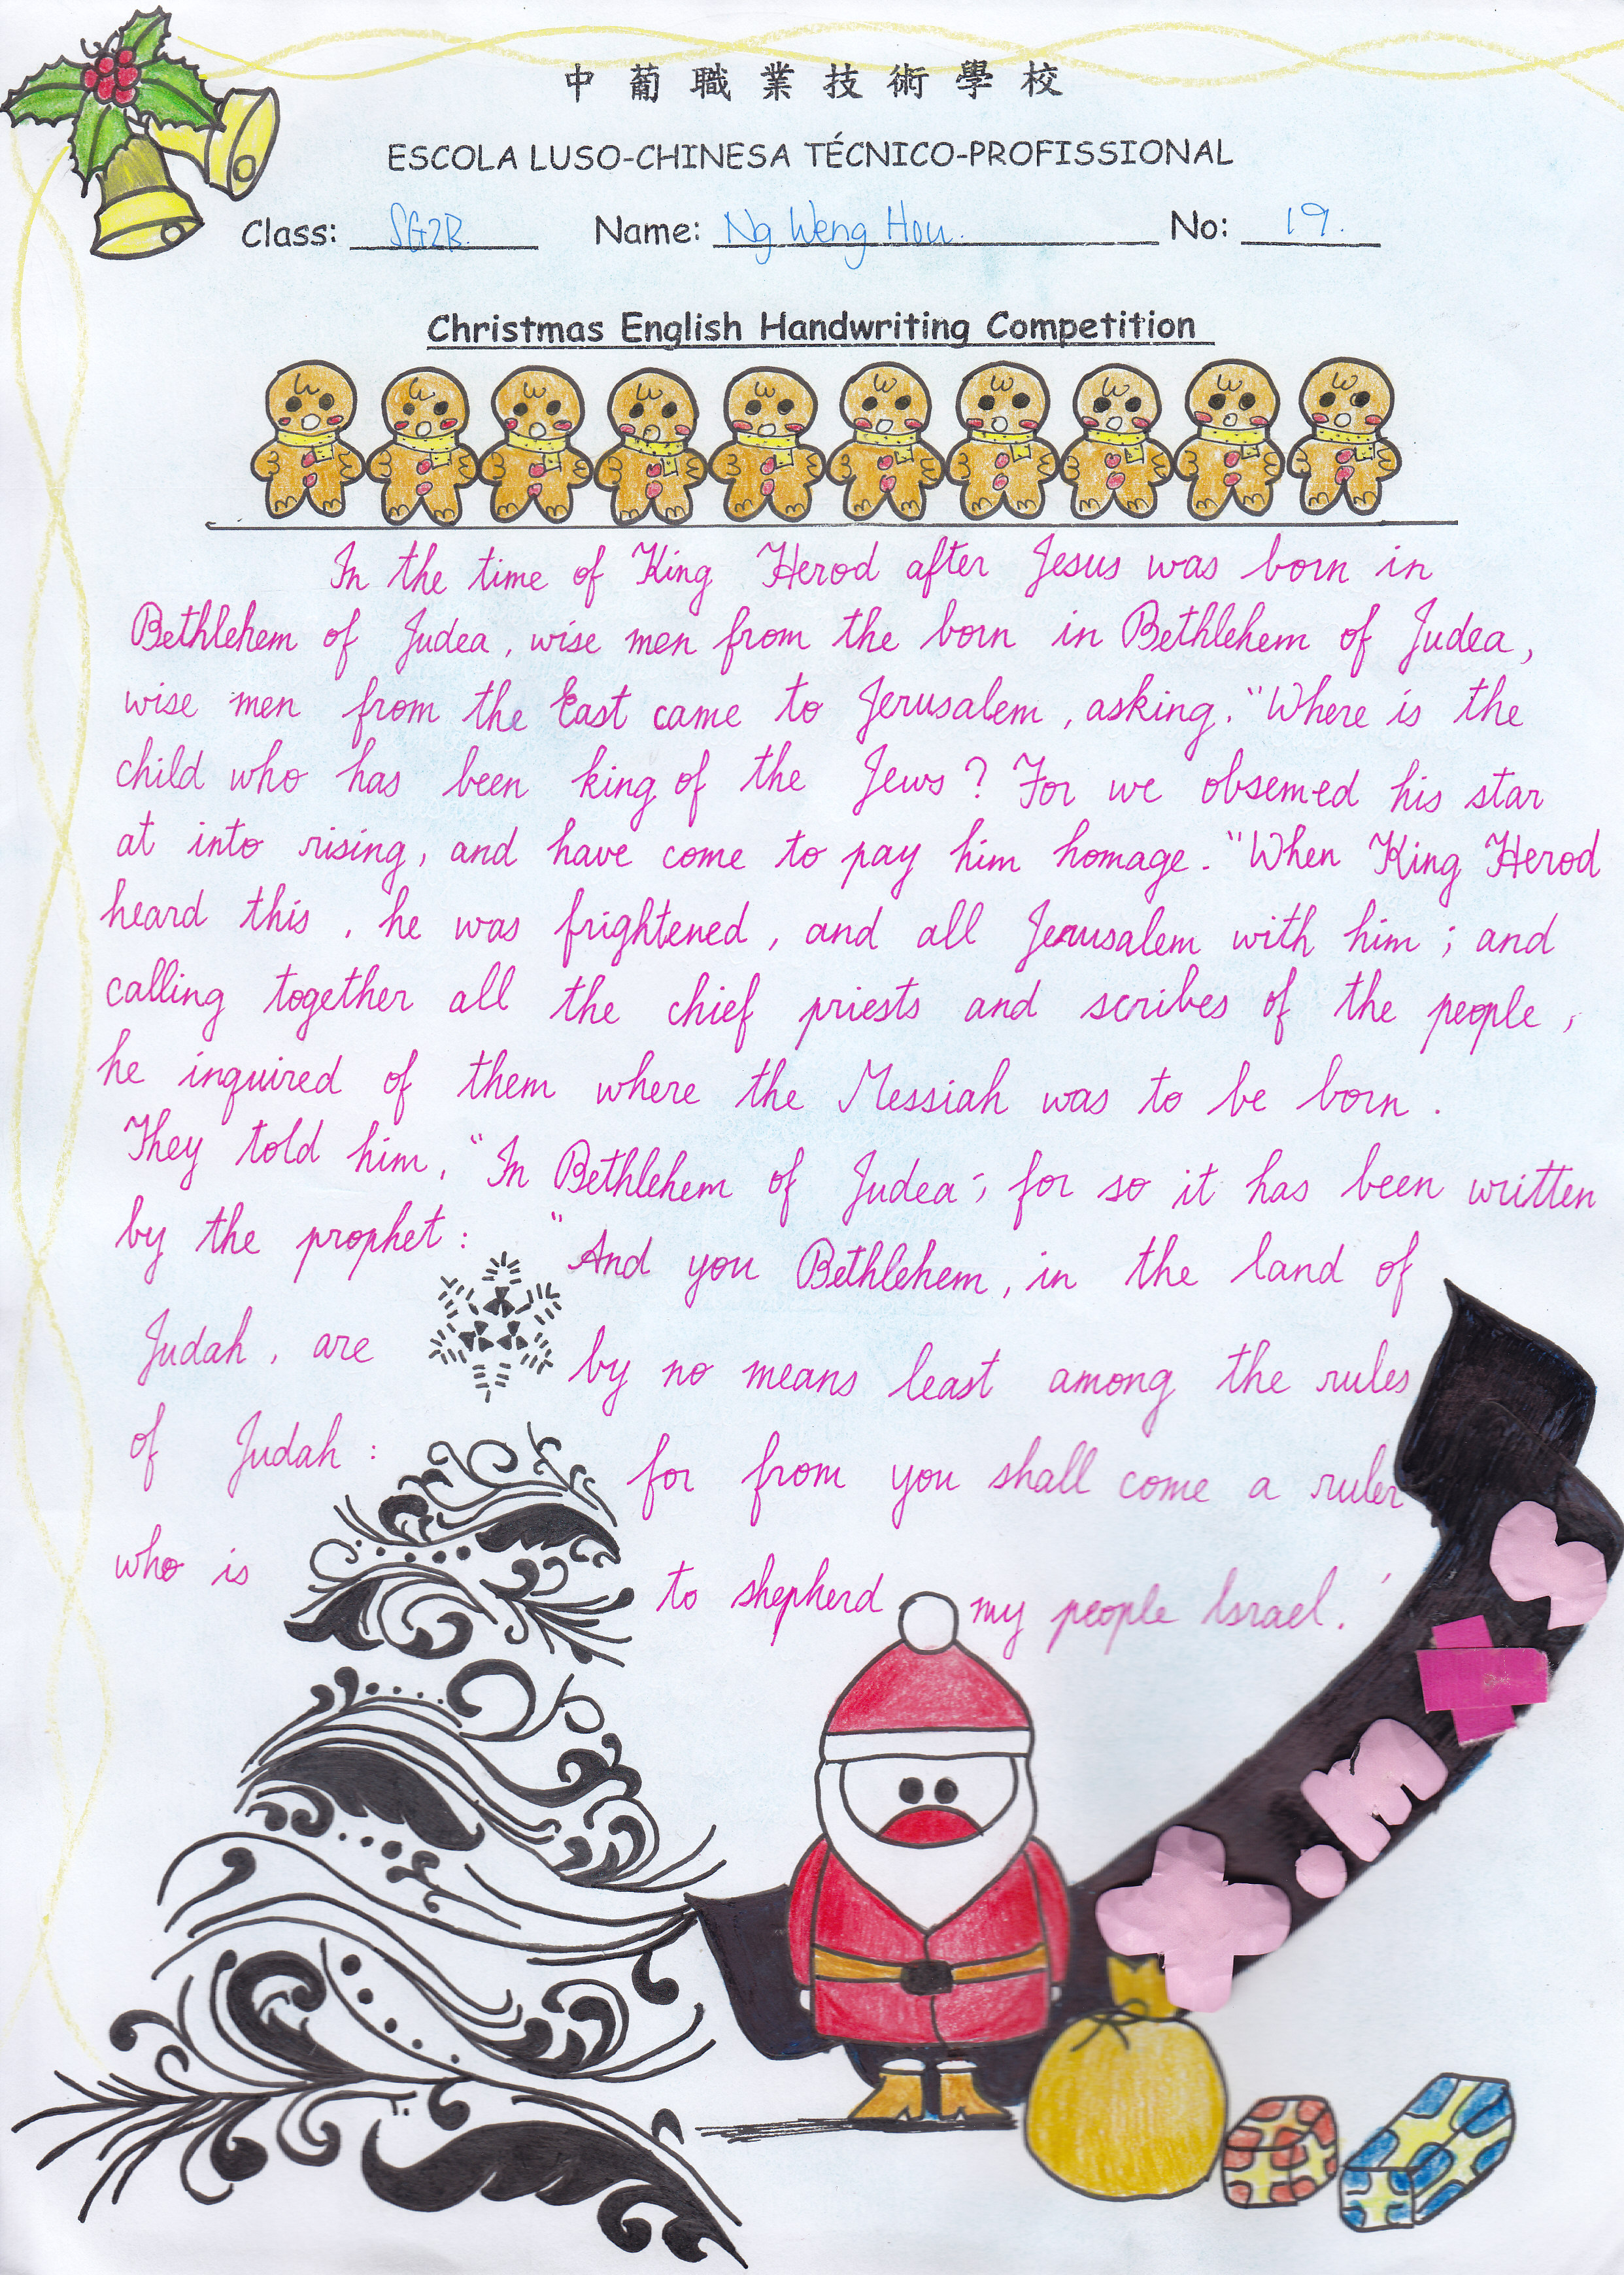 中葡職業技術學校
ESCOLA LUSO-CHINESA TÉCNICO-PROFISSIONAL
Class: SG2B. Name: Ng Weng Hou. No: 19.
Christmas English Handwriting Competition
In the time of King Herod after Jesus was born in
Bethlehem of Judea, wise men from the born in Bethlehem of Judea,
wise men from the East came to Jerusalem, asking. "Where is the
child who has been king of the Jews? For we obsemed his star
at into rising, and have come to pay him homage. "When King Herod
heard this, he was frightened, and all Jerusalem with him; and
calling together all the chief priests and scribes of the people,
he inquired of them where the Messiah was to be born.
They told him. "In Bethlehem of Judea-; for so it has been written
by the prophet: "And you Bethlehem, in the land of
Judah, are by no means least among the rules
of Judah: for from you shall come a ruler
who is to shepherd my people Israel.'
X.m X